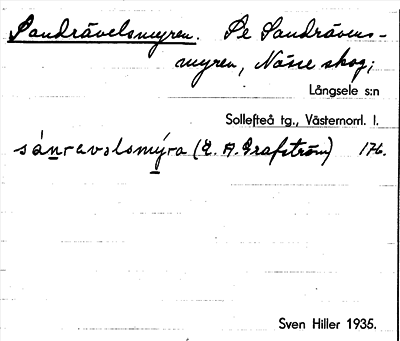 Sandrävelsmyren. Pe Sandrävens-
myren, Nässe skog;
Långsele s:n
Sollefteå tg., Västernorrl. l.
sánravəlsmýra (E. A. Grafström) 176.
Sven Hiller 1935.